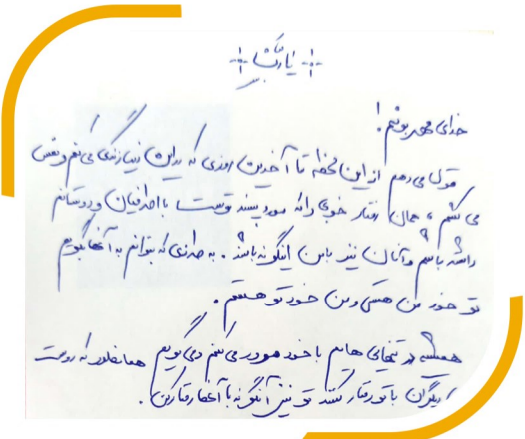 یا رب
خدای مهربونم!
قول می‌دهم از این لحظه تا آخرین روزی که در این دنیا زندگی می‌کنم و نفس
می کشم، همان رفتار خوبی را که مورد پسند توست با اطرافیان و دوستانم
داشته باشم و آنان نیز با من اینگونه باشند. به طرزی که بتوانم به آنها بگویم
تو خود من هستی و من خود تو هستم.
همیشه در تنهایی هایم با خود مرور می کنم و می گویم همانطور که دوست
دیگران با تو رفتار کنند تو نیز آنگونه با آنها رفتار کن.